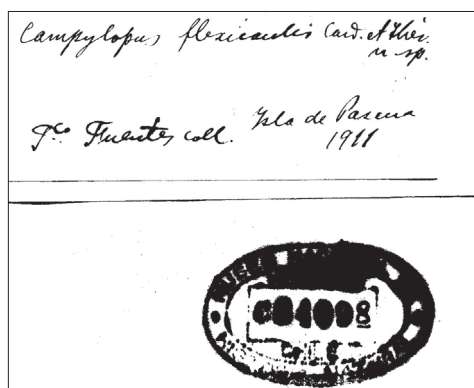 Campylopus flexicaulis Card. et Thér.
n. sp.
Fco Fuentes coll. Isla de Pascua
1911